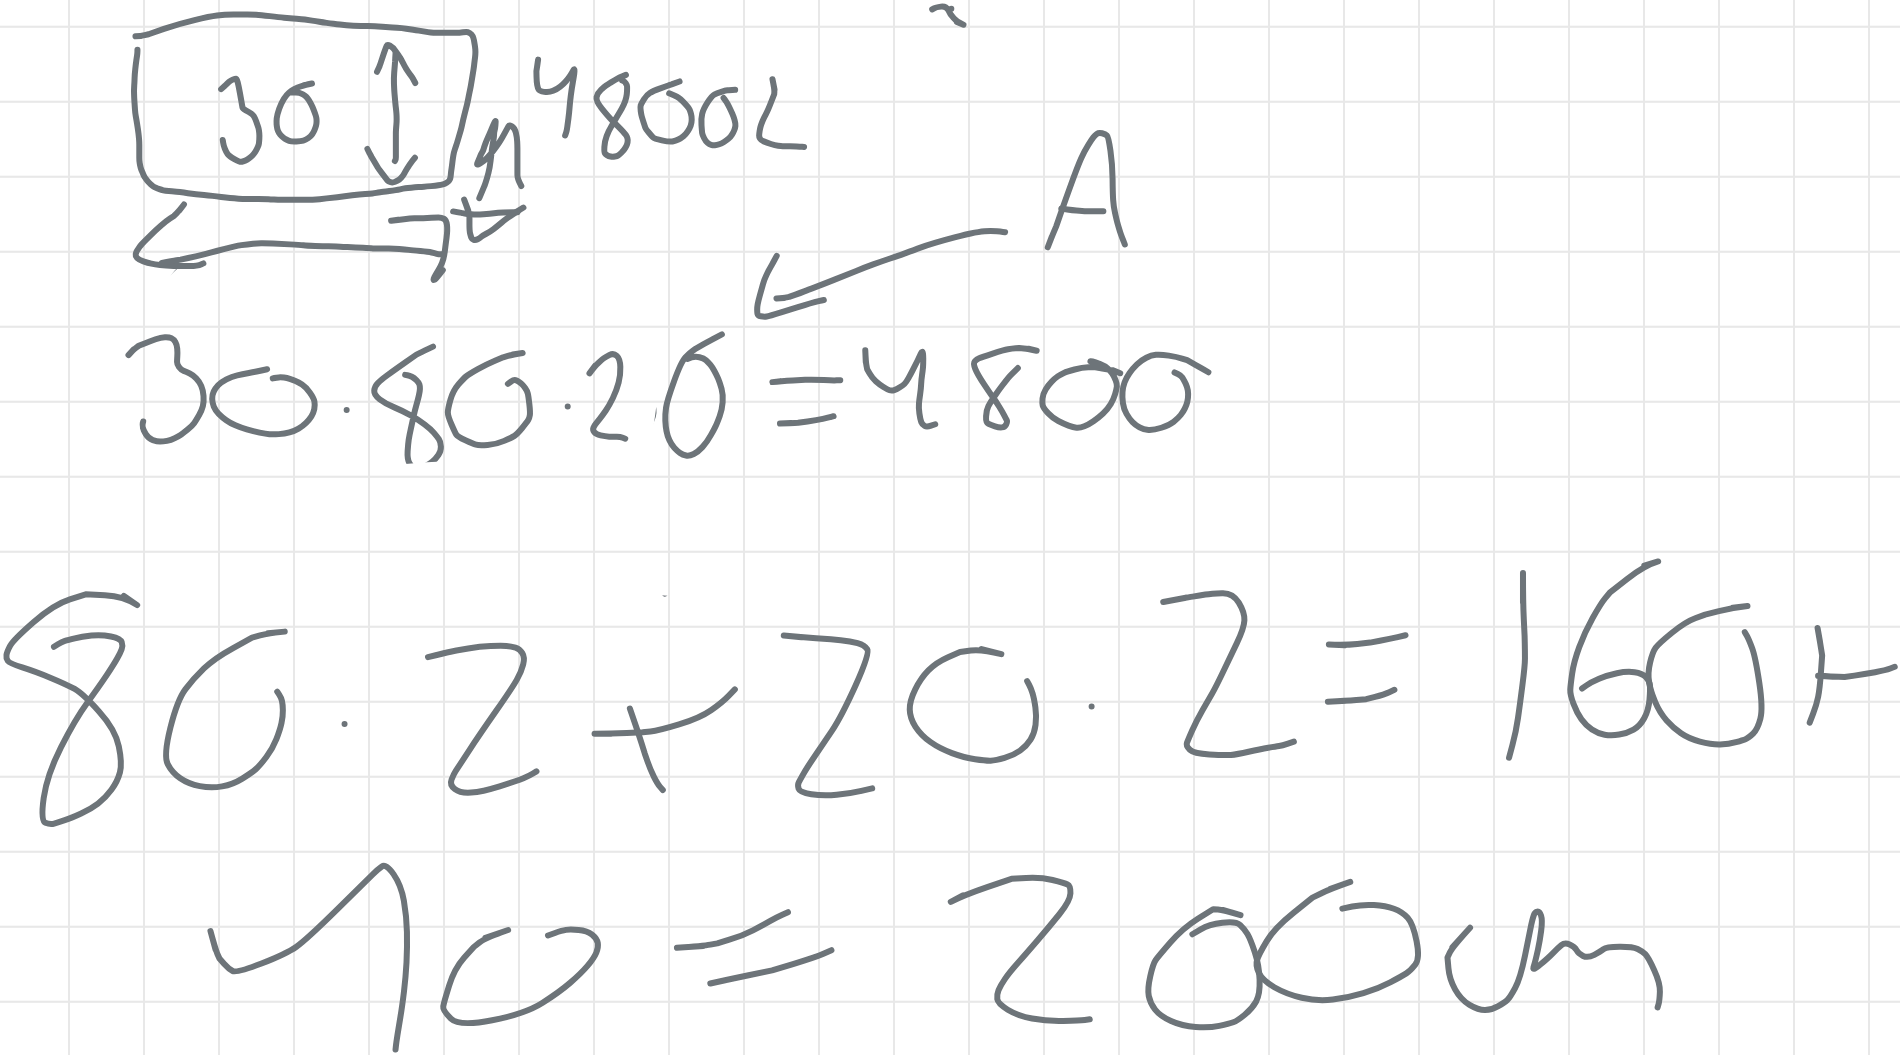 30 4800L
A
30·80·20=4800
80·2+20·2=160+
40=200cm